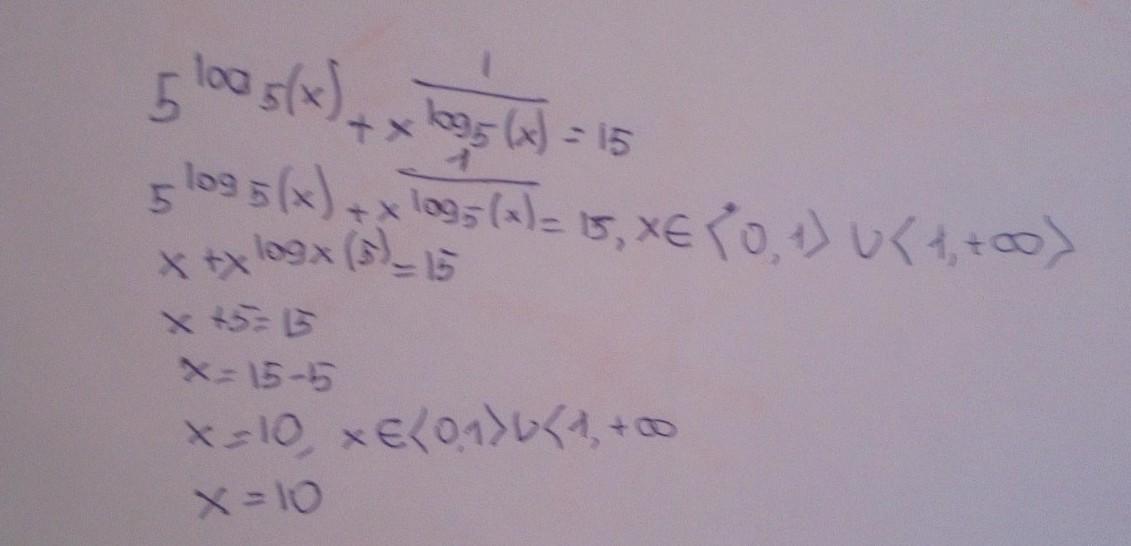 5^log5(x) + x^1/log5(x) = 15
5^log5(x) + x^1/log5(x) = 15, x∈⟨0,1⟩ ∪ ⟨1,+∞⟩
x + x^logx(5) = 15
x + 5 = 15
x = 15 - 5
x = 10, x∈⟨0,1⟩ ∪ ⟨1,+∞
x = 10